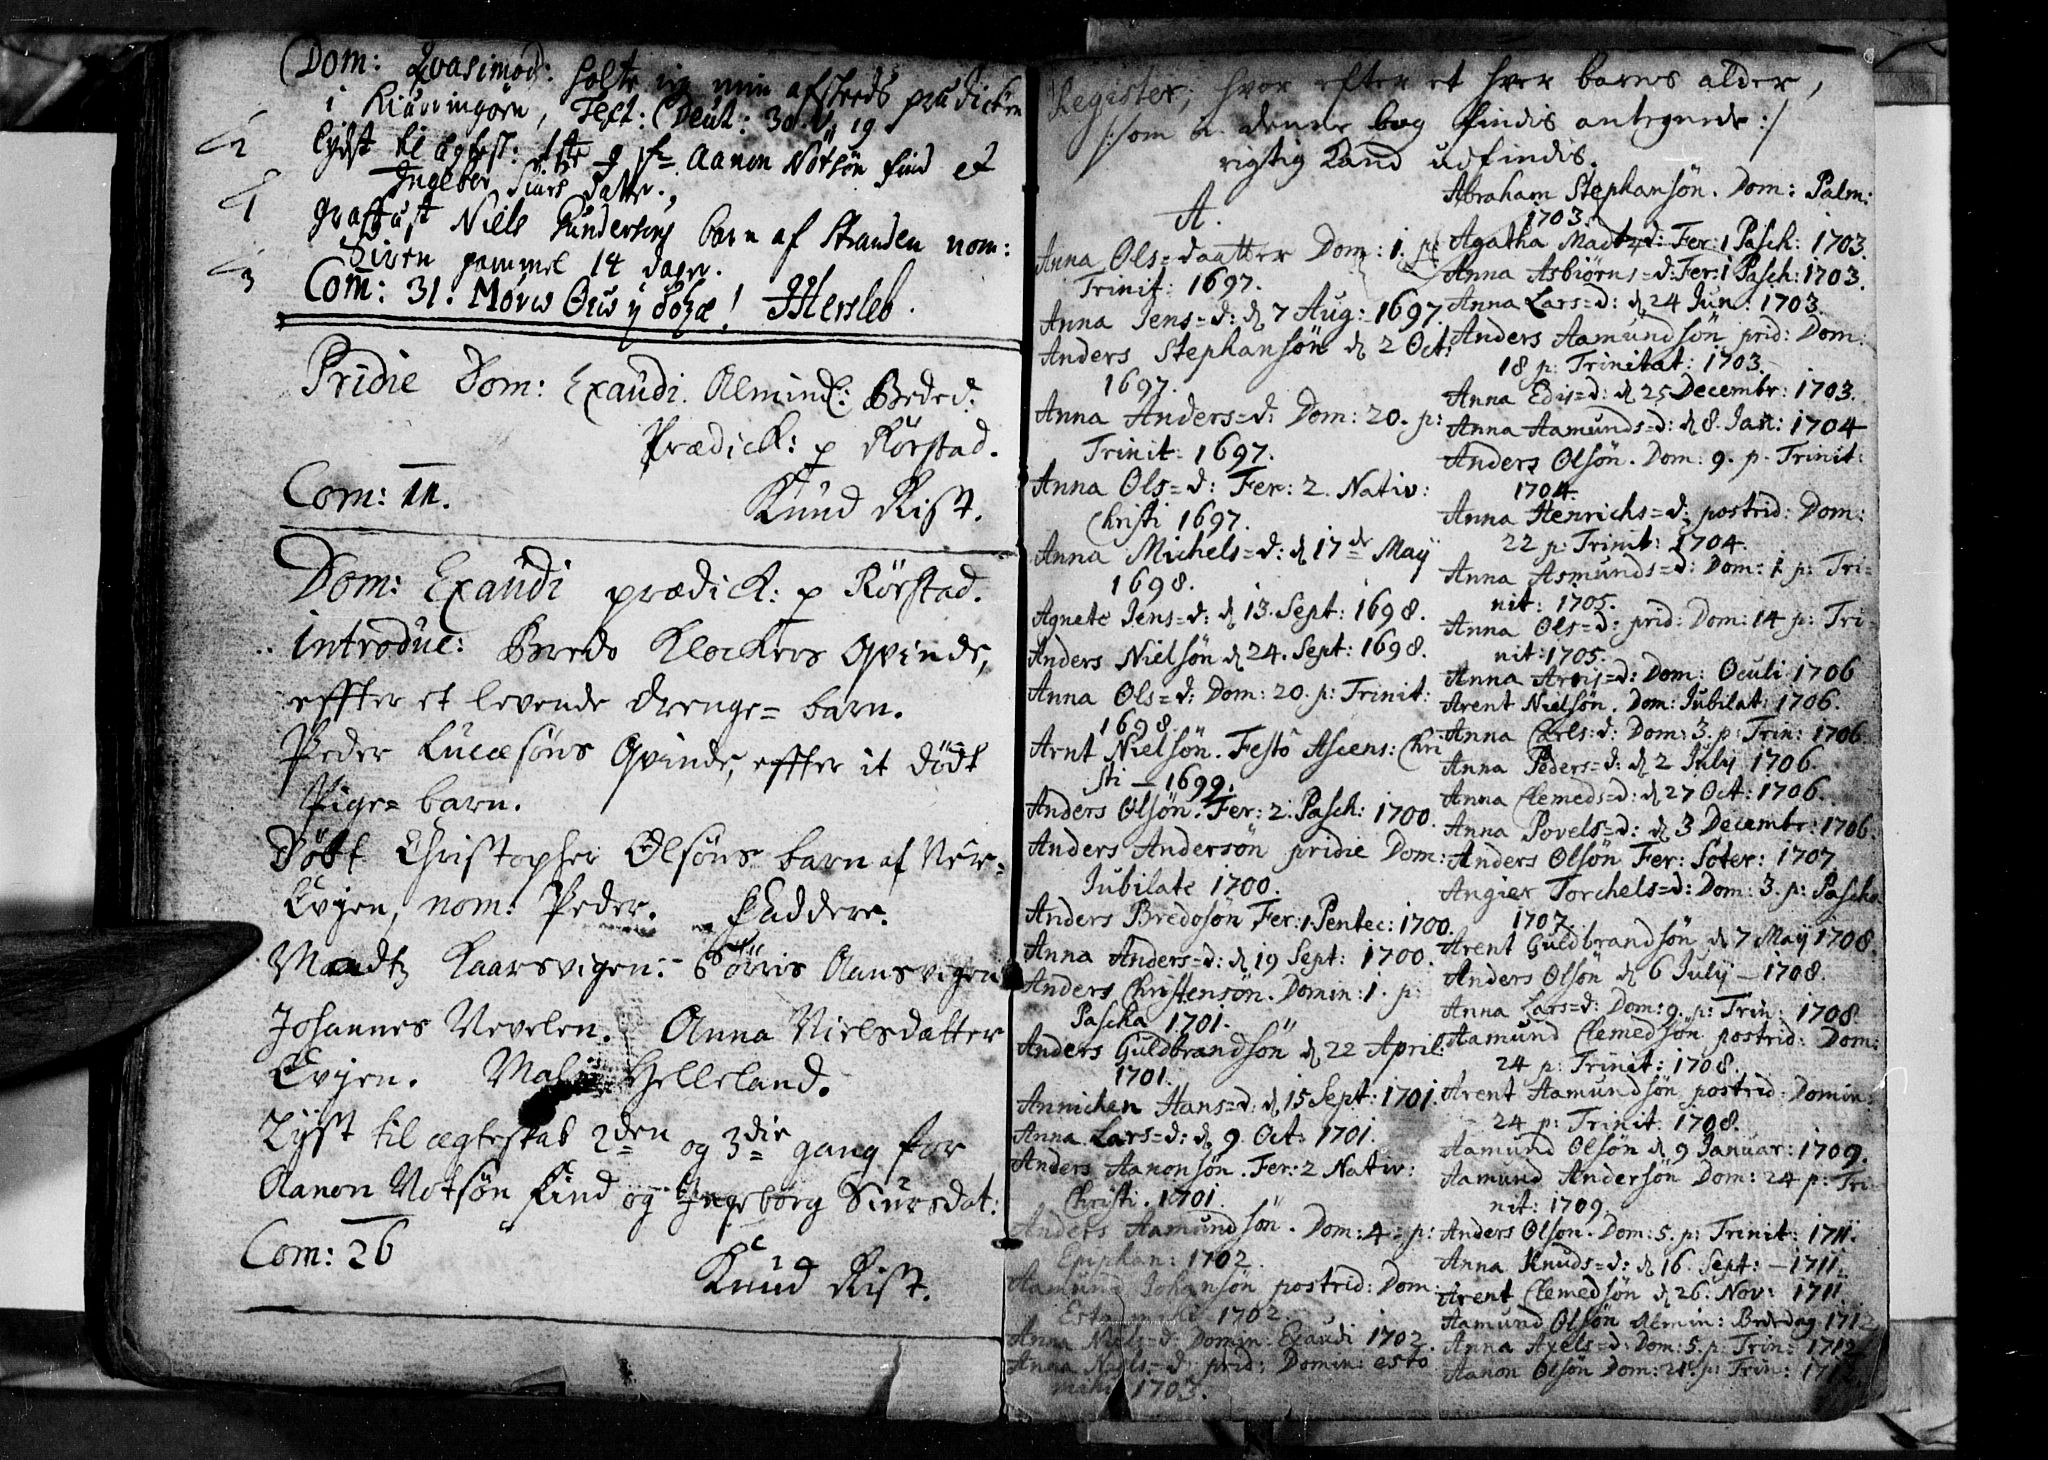 Dom: Qvasimod: holte ieg min afskeeds prædicken
i Kiærringøen, Text: Deut: 30. v. 19.
Lyst til egtesk: 1ste g. f= Aanon Notsøn find et
Ingebor Siurs Datter.
Graffæst Niels Gundersøns barn af Stranden nom:
Siven gammel 14 dager.
Com: 31. JHersleb.
2
1
3
Pridie Dom: Exaudi. Almindl: Beded:
Prædick: p Rörstad.
Com: 11.
Knud Rist.
Dom: Exaudi prædick: p Rörstad.
Introduc: Bredo Klockers Qvinde,
effter et levende drenge= barn.
Peder Lucæsöns Qvinde, effter it dödt
Pige= barn.
Döbt Christopher Olsöns barn af Nör=
Evjen, nom: Peder. Faddere.
Madtz Kaarsvigen: Sörris Aansvigen
Johannes Nevelen. Anna Nielsdatter
Evjen. Helleland.
Lyst til ægteskab 2den og 3die gang for
Aanon Notsön find og Ingeborg Siursdat:
Com: 26
Knud Rist.
Register, hvor efter et hver barns alder,
/: som i denne bog findis antegnede :/
rigtig kand udfindis.
A.
Anna Ols=daatter Dom: 1. p:
Trinit: 1697.
Anna Jens=d: d 7 Aug: 1697.
Anders Stephansön d 2 Oct:
1697.
Anna Anders=d: Dom: 20. p:
Trinit: 1697.
Anna Ols=d: Fer: 2. Nativ:
Christi 1697.
Anna Michels=d: d 17de May
1698.
Agnete Jens=d: d 13. Sept: 1698.
Anders Nielsön d 24. Sept: 1698.
Anna Ols=d: Dom: 20. p: Trinit:
1698.
Arnt Nielsön. Festo Ascens: Chri
sti - 1699.
Anders Olsön. Fer: 2. Pasch: 1700.
Anders Andersön pridie Dom:
Jubilate 1700.
Anders Bredosön Fer: 1. Pentec: 1700.
Anna Anders=d: d 19 Sept: 1700.
Anders Christensön. Domin: 1. p:
Pascha 1701.
Anders Guldbrandsön d 22 April:
1701.
Annichen Hans=d: d 15 Sept: 1701.
Anna Lars=d: d 9. Oct: 1701.
Anders Aanonsön. Fer: 2 Nativ:
Christi. 1701.
Anders Aamundsön. Dom: 4 p:
Epiphan: 1702.
Aamund Johansön postrid: Dom:
1702.
Anna Niels=d: Domin: Exaudi 1702.
Anna Niels=d: prid: Domin: esto
mihi 1703.
Abraham Stephansön. Dom: Palm:
1703.
Agatha Madtz=d: Fer: 1 Pasch: 1703.
Anna Asbiörns=d: Fer: 1 Pasch: 1703.
Anna Lars=d: d 24 Jun: 1703.
Anders Aamundsön prid: Dom:
18 p: Trinitat: 1703.
Anna Edis=d: d 25 Decembr: 1703.
Anna Aamunds=d: d 8. Jan: 1704
Anders Olsön. Dom: 9. p. Trinit:
1704.
Anna Henrichs=d: postrid: Dom:
22 p: Trinit: 1704.
Anna Asmunds=d: Dom: 1 p: Tri=
nit: 1705.
Anna Ols=d: prid: Dom: 14 p: Tri=
nit: 1705.
Anna =d: Dom: Oculi 1706
Arent Nielsön. Dom: Jubilat: 1706.
Anna Carls=d: Dom: 3. p: Trin: 1706.
Anna Peders=d: d 2 July 1706.
Anna Clemeds=d: d 27 Oct: 1706.
Anna Povels=d: d 3 Decembr: 1706.
Anders Olsön Fer: Soter: 1707.
Angier Torchels=d: Dom: 3. p: Pascha
1707.
Arent Guldbrandsön d 7 May 1708.
Anders Olsön d 6 July - 1708.
Anna Lars=d: Dom: 9. p: Trin: 1708.
Aamund Clemedsön postrid: Dom:
24 p: Trinit: 1708.
Arent Aamundsön postrid: Domin:
24 p: Trinit. 1708.
Aamund Olsön d 9 Januar: 1709.
Aamund Andersön Dom: 24 p: Tri=
nit: 1709.
Anders Olsön. Dom: 5. p: Trinit: 1711.
Anna Knuds=d: d 16. Sept: - 1711.
Arent Clemedsön d 26. Nov: 1711
Aamund Olsön Almin: Bededag 1712
Anna Axels=d: Dom: 5. p: Trin= 1712
Aanon Olsön Dom: 21. p: Trin: 1712